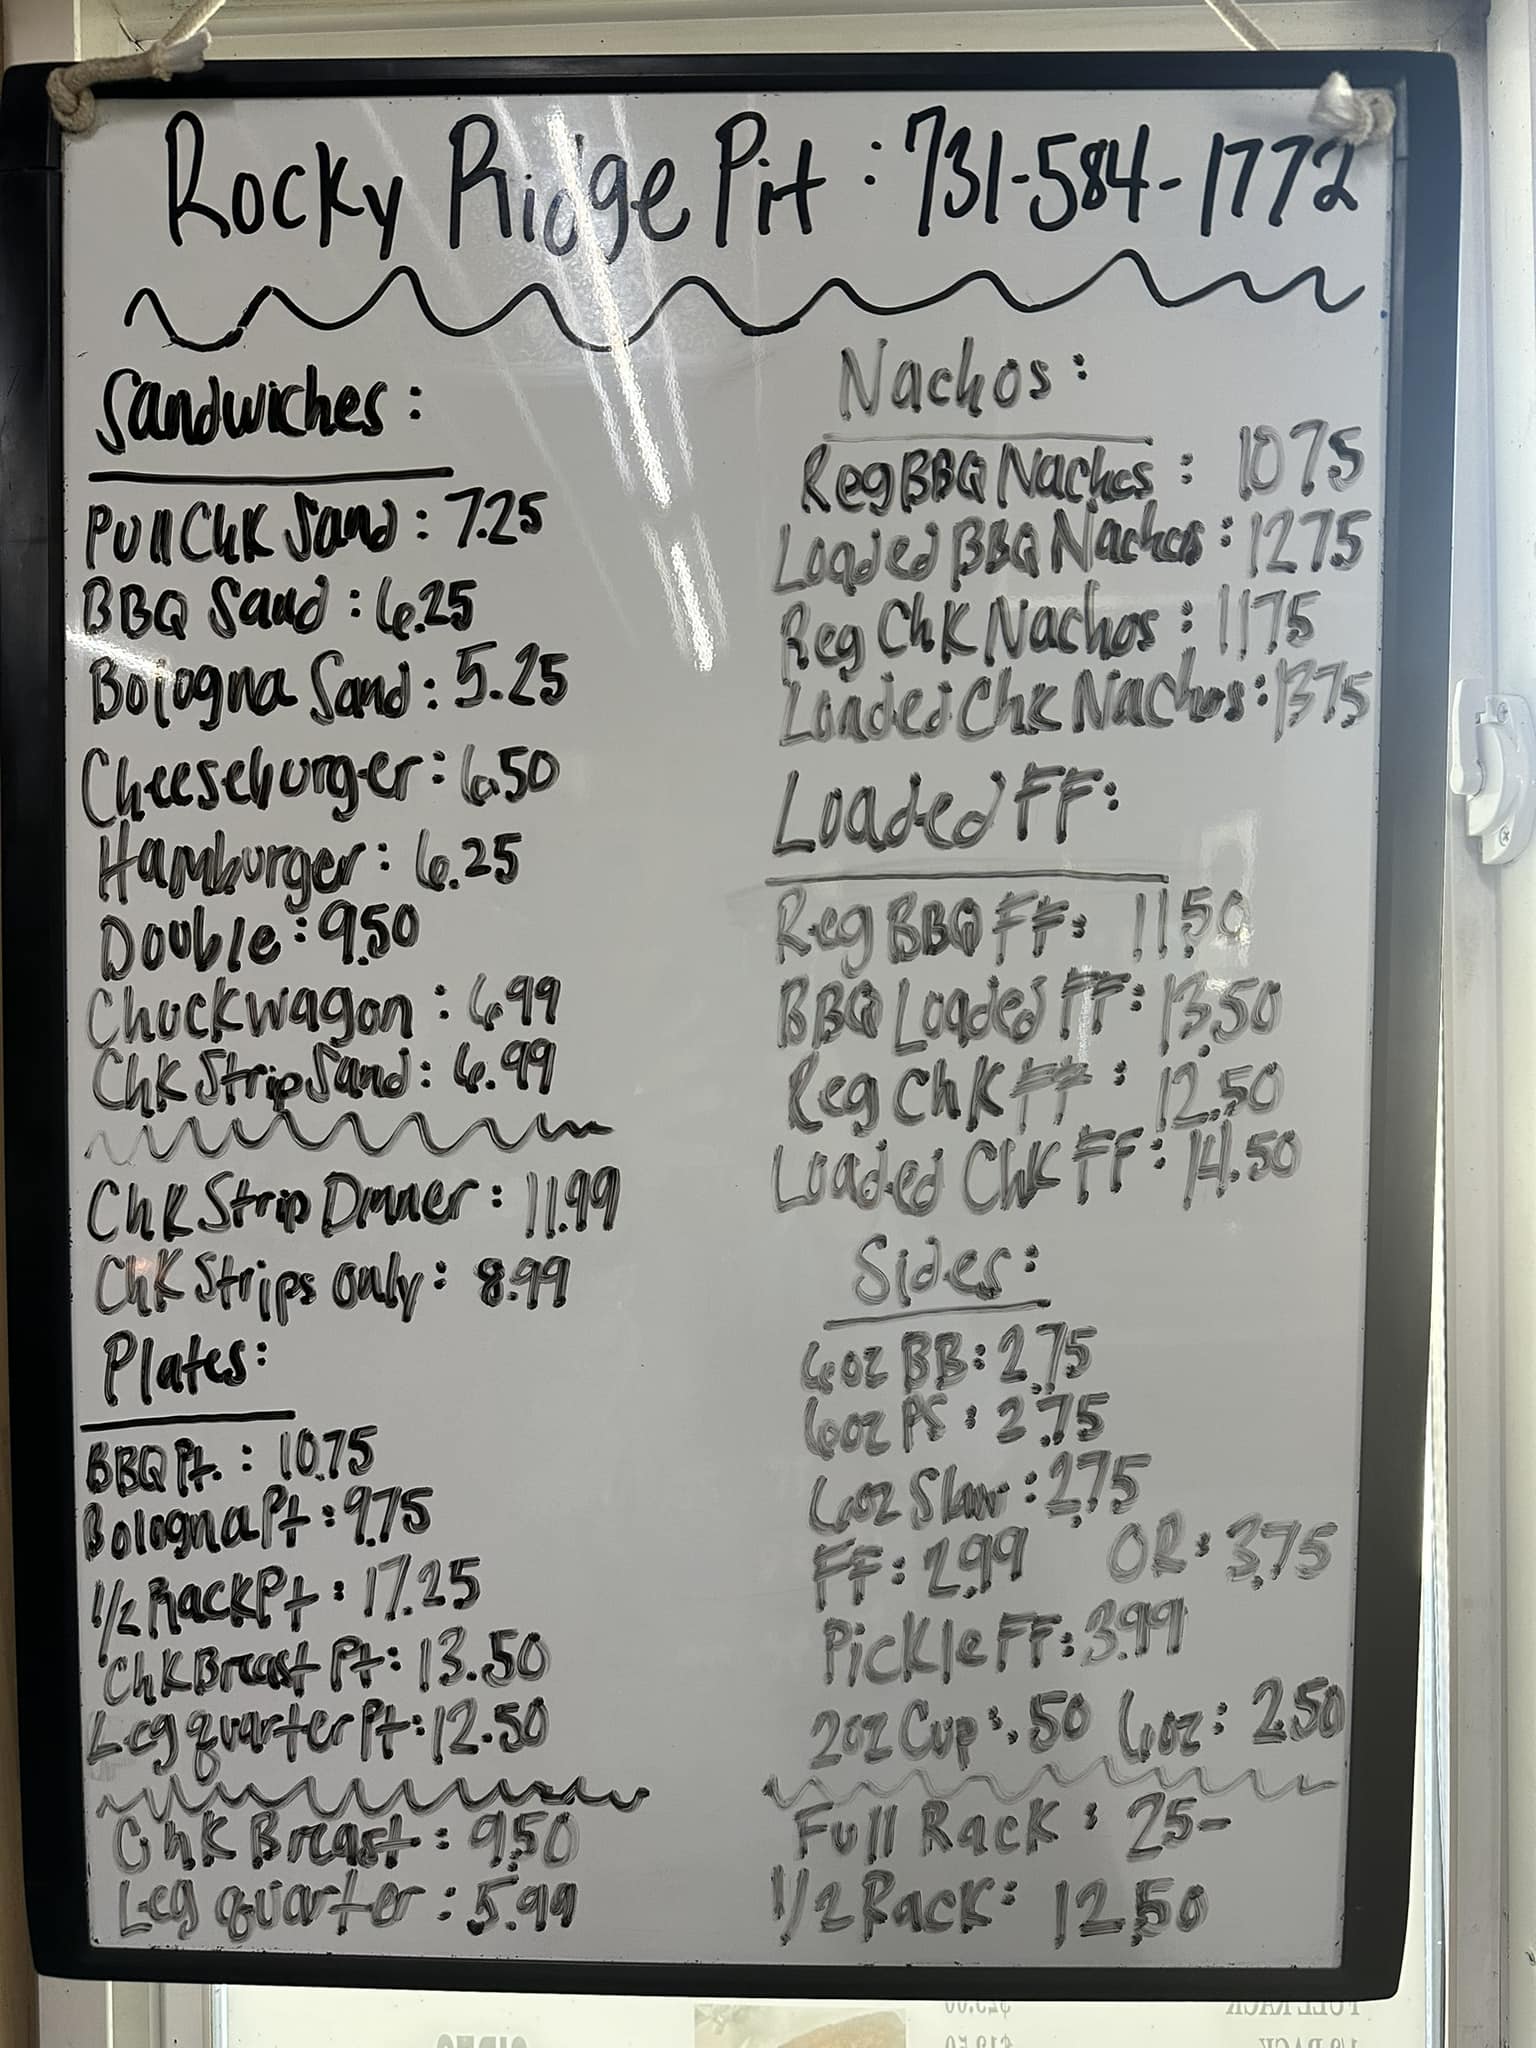 Rocky Ridge Pit : 731-584-1772
Sandwiches :
Pull Chk Sand : 7.25
BBQ Sand : 6.25
Bologna Sand : 5.25
Cheeseburger : 6.50
Hamburger : 6.25
Double : 9.50
Chuckwagon : 6.99
Chk Strip Sand : 6.99
Chk Strip Dinner : 11.99
Chk Strips Only : 8.99
Plates :
BBQ Pt. : 10.75
Bologna Pt : 9.75
1/2 Rack Pt : 17.25
Chk Breast Pt : 13.50
Leg quarter Pt : 12.50
Chk Breast : 9.50
Leg quarter : 5.99
Nachos :
Reg BBQ Nachos : 10 75
Loaded BBQ Nachos : 12 75
Reg Chk Nachos : 11 75
Loaded Chk Nachos : 13 75
Loaded FF :
Reg BBQ FF : 11.50
BBQ Loaded FF : 13.50
Reg Chk FF : 12.50
Loaded Chk FF : 14.50
Sides :
6oz BB : 2.75
6oz PS : 2.75
6oz Slaw : 2.75
FF : 2.99 OR : 3.75
Pickle FF : 3.99
2oz Cup : .50 6oz : 2.50
Full Rack : 25-
1/2 Rack : 12.50